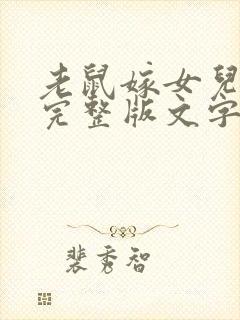 老鼠嫁女兒
完整版文字
裴秀智